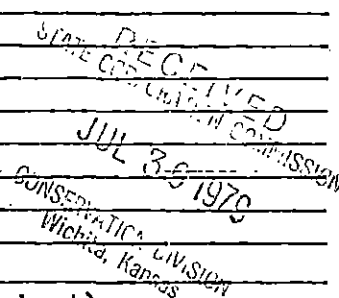 RECEIVED
STATE CORPORATION COMMISSION
JUL 30 1979
CONSERVATION DIVISION
Wichita, Kansas